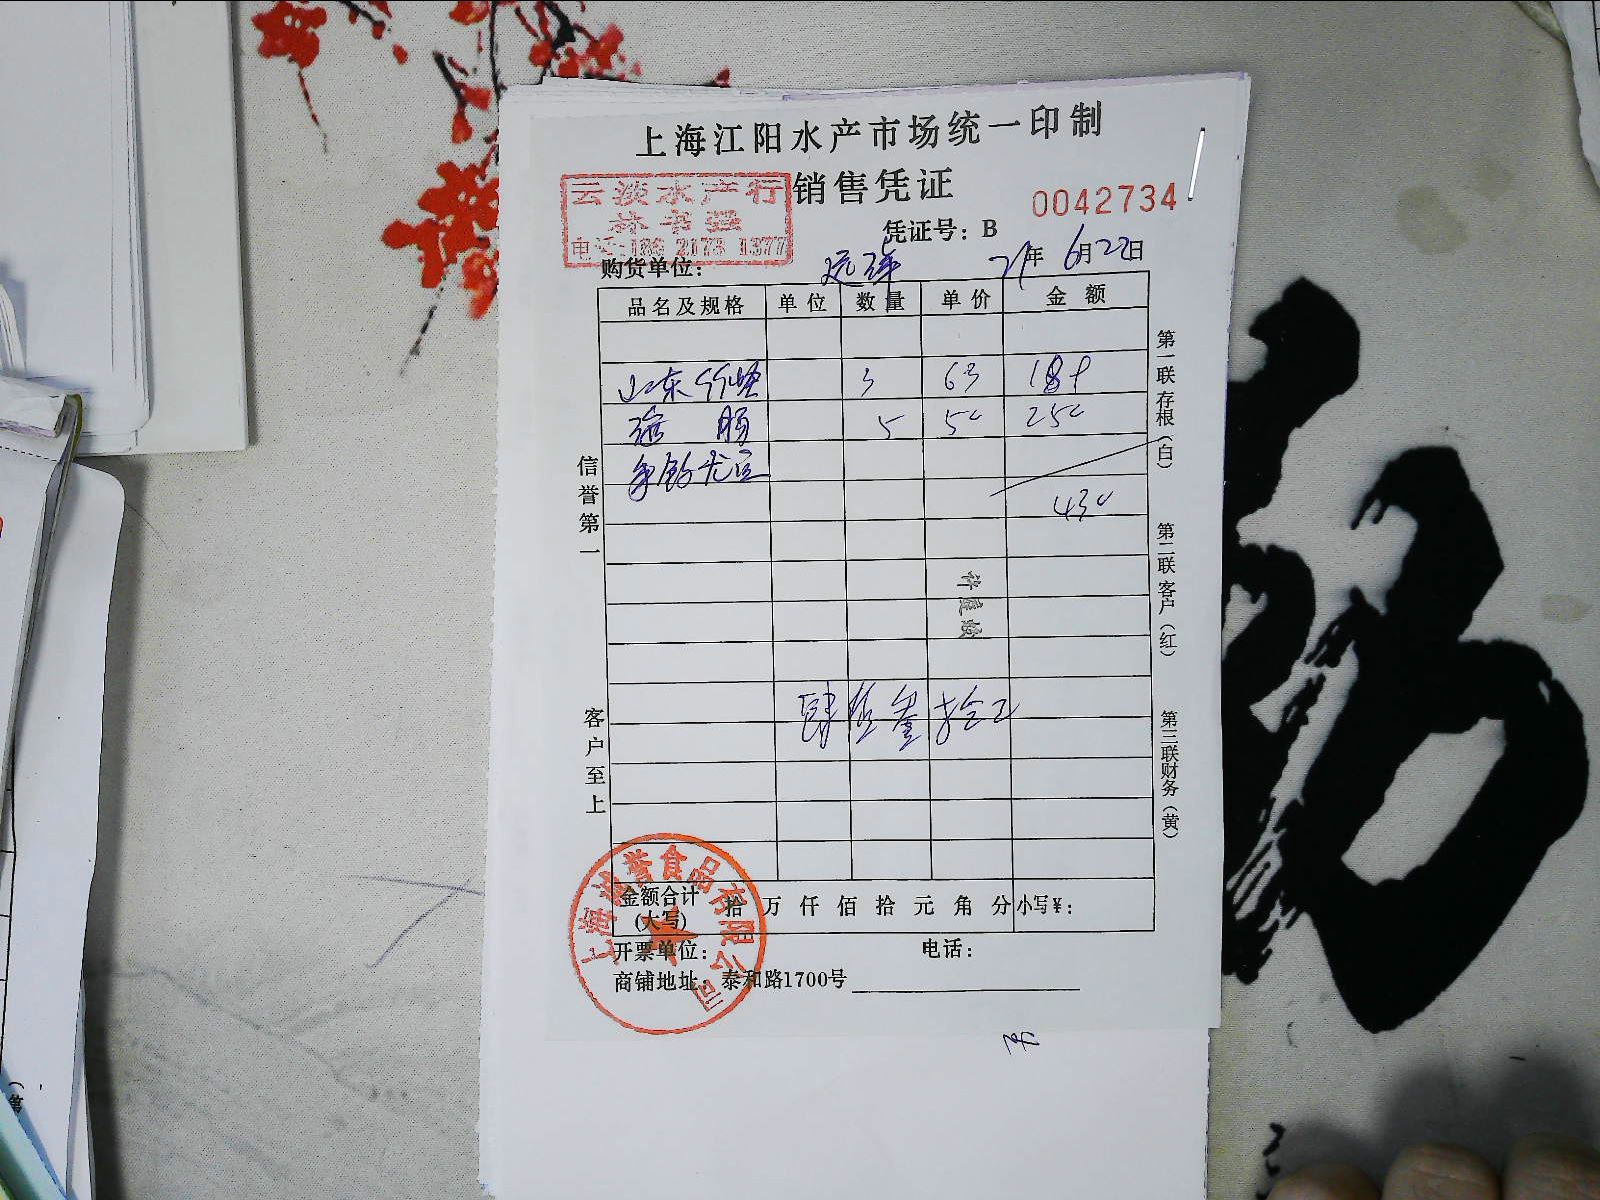 上海江阳水产市场统一印制
销售凭证
0042734
云淡水产行
林书强
电话:186 2173 1377
凭证号: B
购货单位: 21年6月22日
品名及规格 单位 数量 单价 金额
山东竹蛏 3 63 189
海肠 5 50 250
430
肆佰叁拾
信誉第一
客户至上
第一联存根(白)
第二联客户(红)
第三联财务(黄)
金额合计(大写) 拾万仟佰拾元角分 小写¥:
开票单位: 电话:
商铺地址: 泰和路1700号
上海诚誉食品有限公司